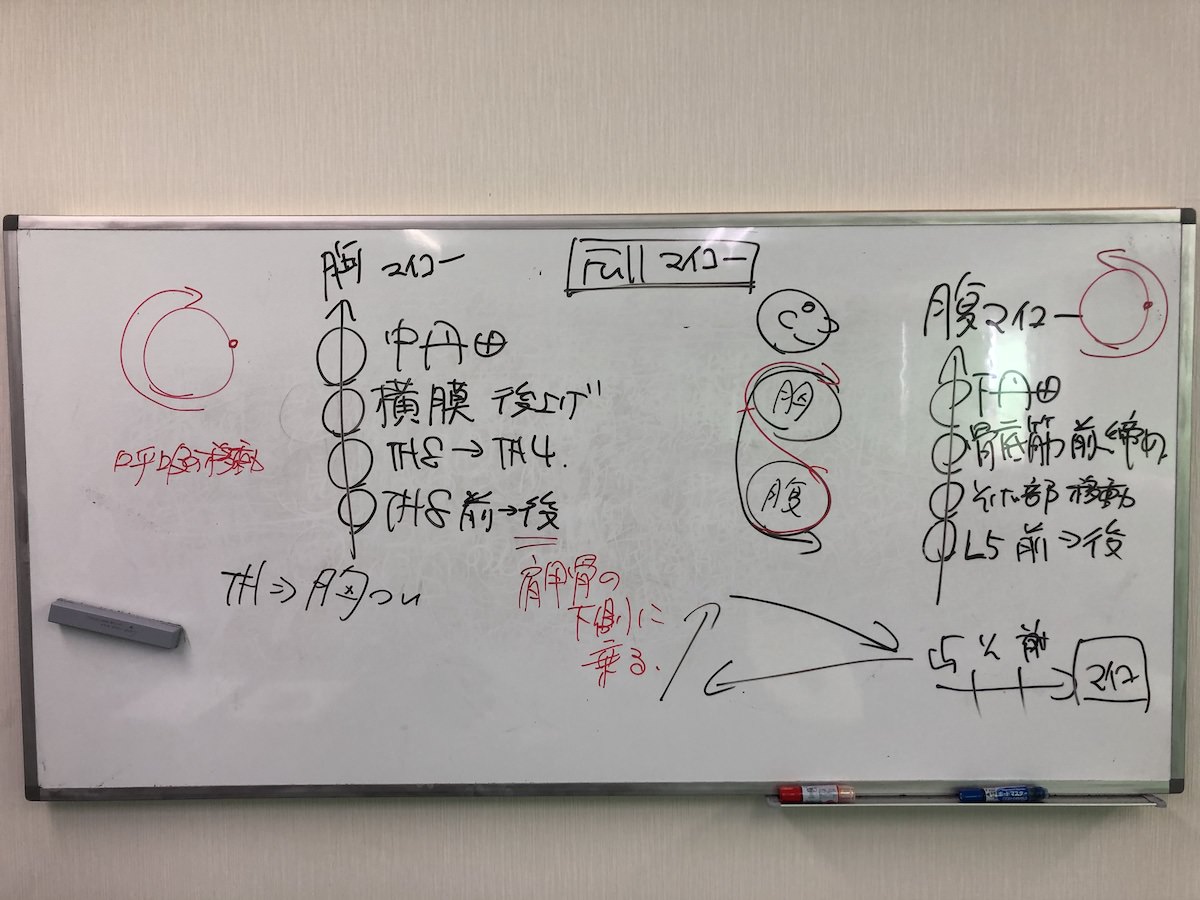 Full マイコー
胸 マイコー
中丹田
横膜 後上げ
TH8→TH4.
TH8 前→後
TH⇒胸つい
呼吸移動
肩甲骨の
下側に
乗る.
胸
腹
腹マイコー
下丹田
骨底筋前締め
そけい部 移動
L5 前→後
L5 そ 前
マイコ